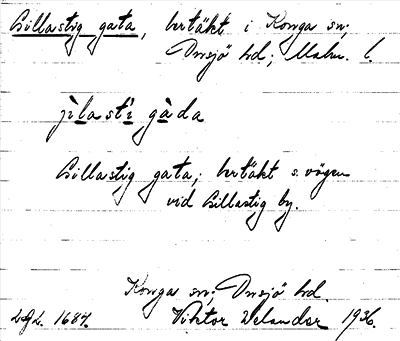 Gillastig gata, hörtäkt i Konga sn;
Onsjö hd; Malm. l.
jìlastì gàda
Gillastig gata; hörtäkt s. vägen
vid Gillastig by.
Konga sn; Onsjö hd.
1684. Viktor Velander 1936.